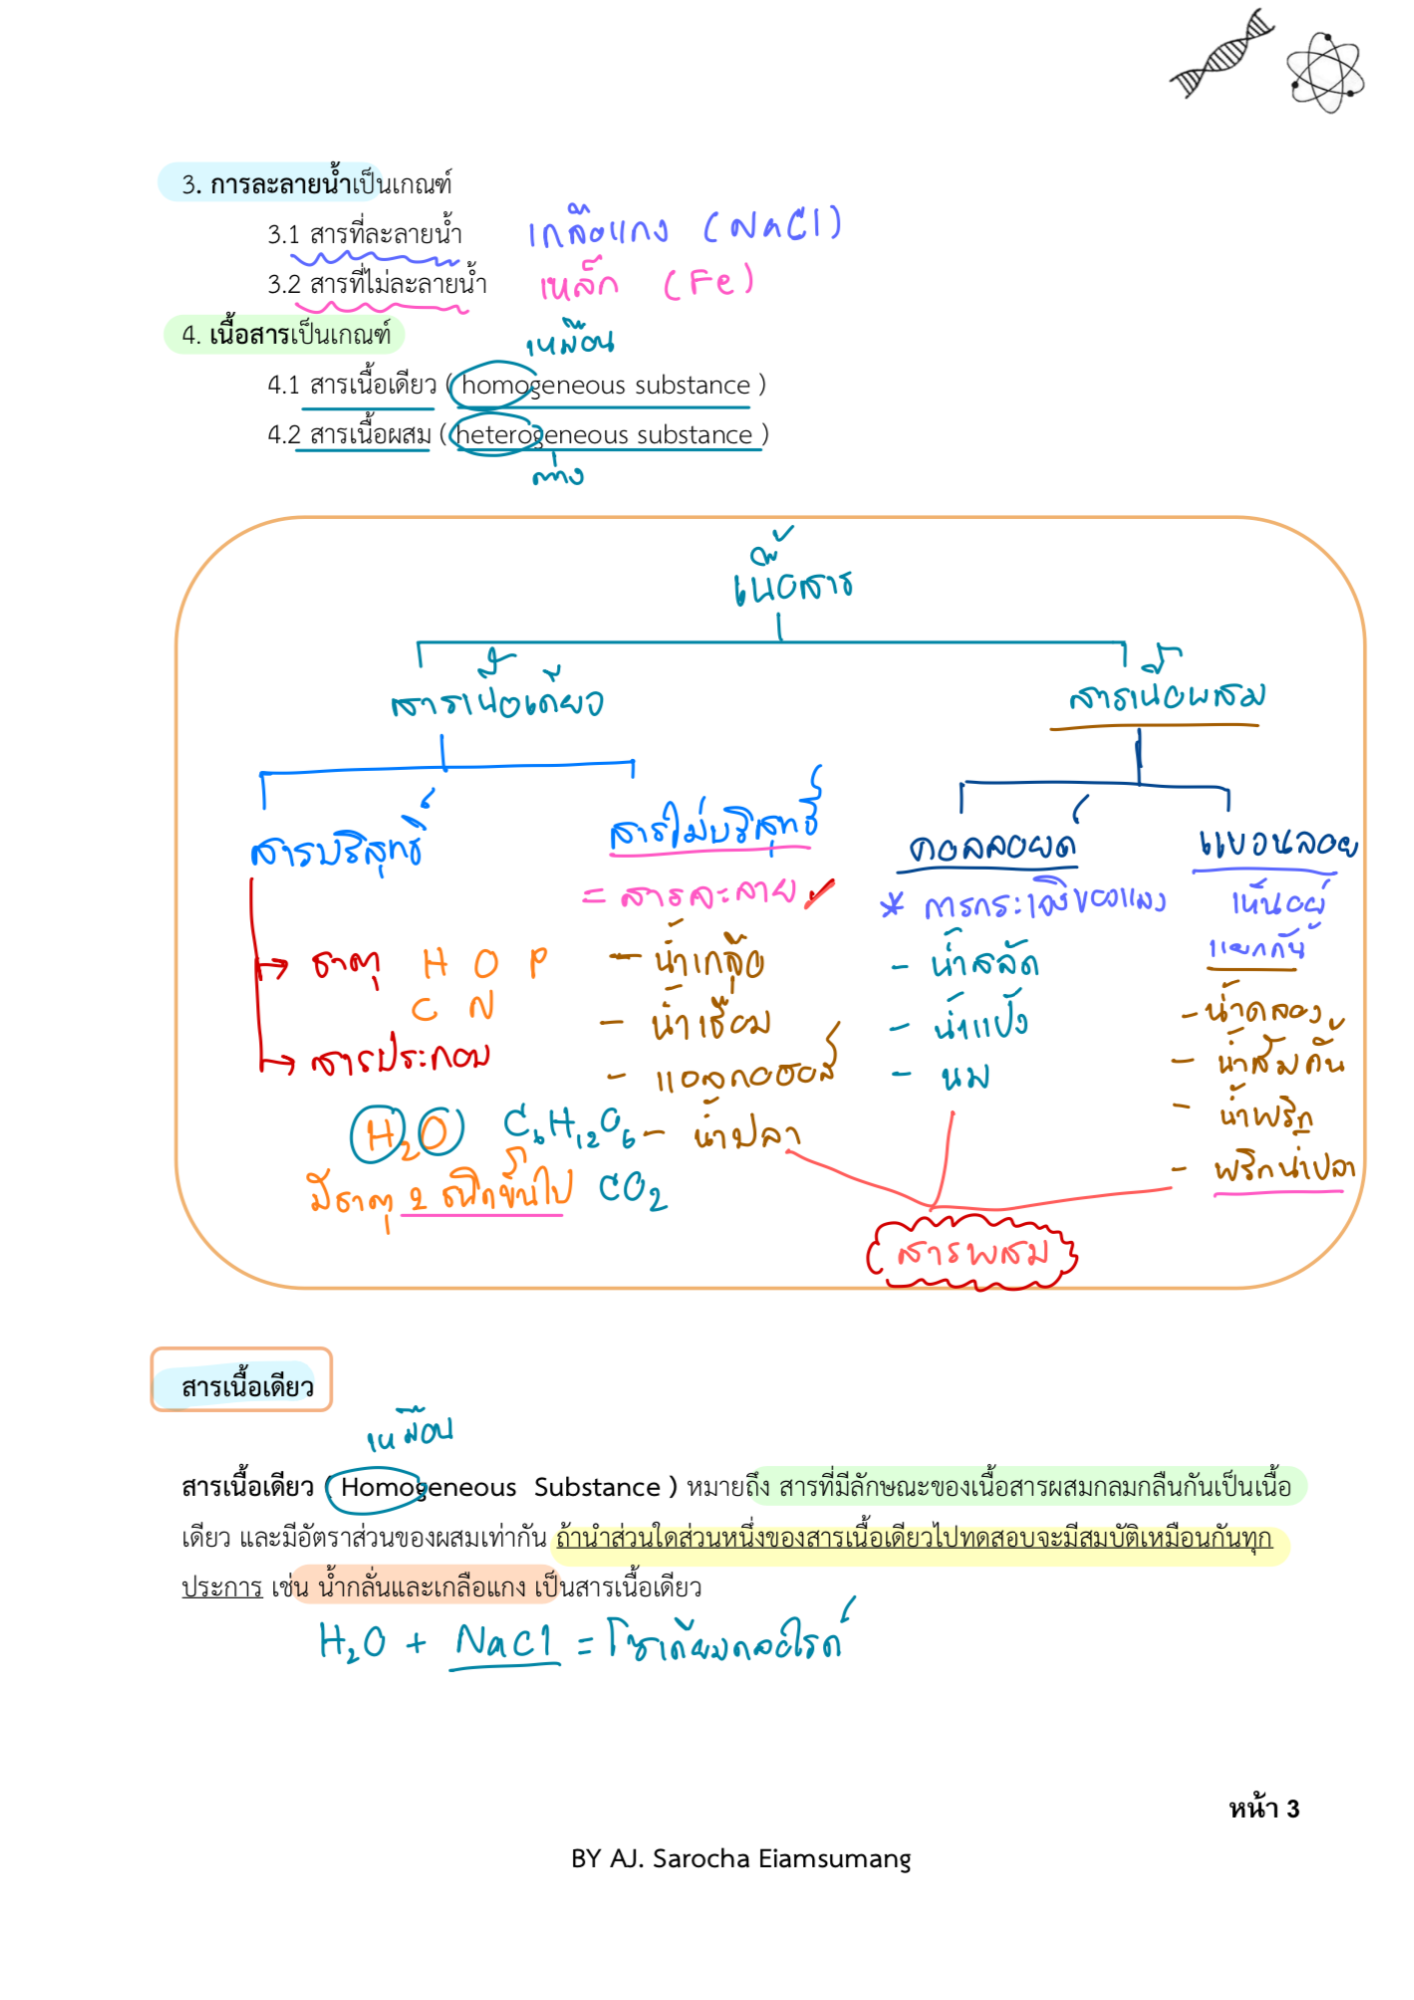 3. การละลายน้ำเป็นเกณฑ์
3.1 สารที่ละลายน้ำ เกลือแกง (NaCl)
3.2 สารที่ไม่ละลายน้ำ เหล็ก (Fe)
4. เนื้อสารเป็นเกณฑ์
เหมือน
4.1 สารเนื้อเดียว ( homogeneous substance )
4.2 สารเนื้อผสม ( heterogeneous substance )
ต่าง
เนื้อสาร
สารเนื้อเดียว สารเนื้อผสม
สารบริสุทธิ์ สารไม่บริสุทธิ์ คอลลอยด์ แขวนลอย
= สารละลาย ✓ * การกระเจิงของแสง เห็นอยู่
แยกกัน
→ ธาตุ H O P
C N
→ สารประกอบ
H2O C6H12O6
มีธาตุ 2 ชนิดขึ้นไป CO2
- น้ำเกลือ
- น้ำเชื่อม
- แอลกอฮอล์
- น้ำปลา
- น้ำสลัด
- น้ำแป้ง
- นม
- น้ำคลอง
- น้ำส้มคั้น
- น้ำพริก
- พริกน้ำปลา
สารผสม
สารเนื้อเดียว
เหมือน
สารเนื้อเดียว ( Homogeneous Substance ) หมายถึง สารที่มีลักษณะของเนื้อสารผสมกลมกลืนกันเป็นเนื้อ
เดียว และมีอัตราส่วนของผสมเท่ากัน ถ้านำส่วนใดส่วนหนึ่งของสารเนื้อเดียวไปทดสอบจะมีสมบัติเหมือนกันทุก
ประการ เช่น น้ำกลั่นและเกลือแกง เป็นสารเนื้อเดียว
H2O + NaCl = โซเดียมคลอไรด์
หน้า 3
BY AJ. Sarocha Eiamsumang